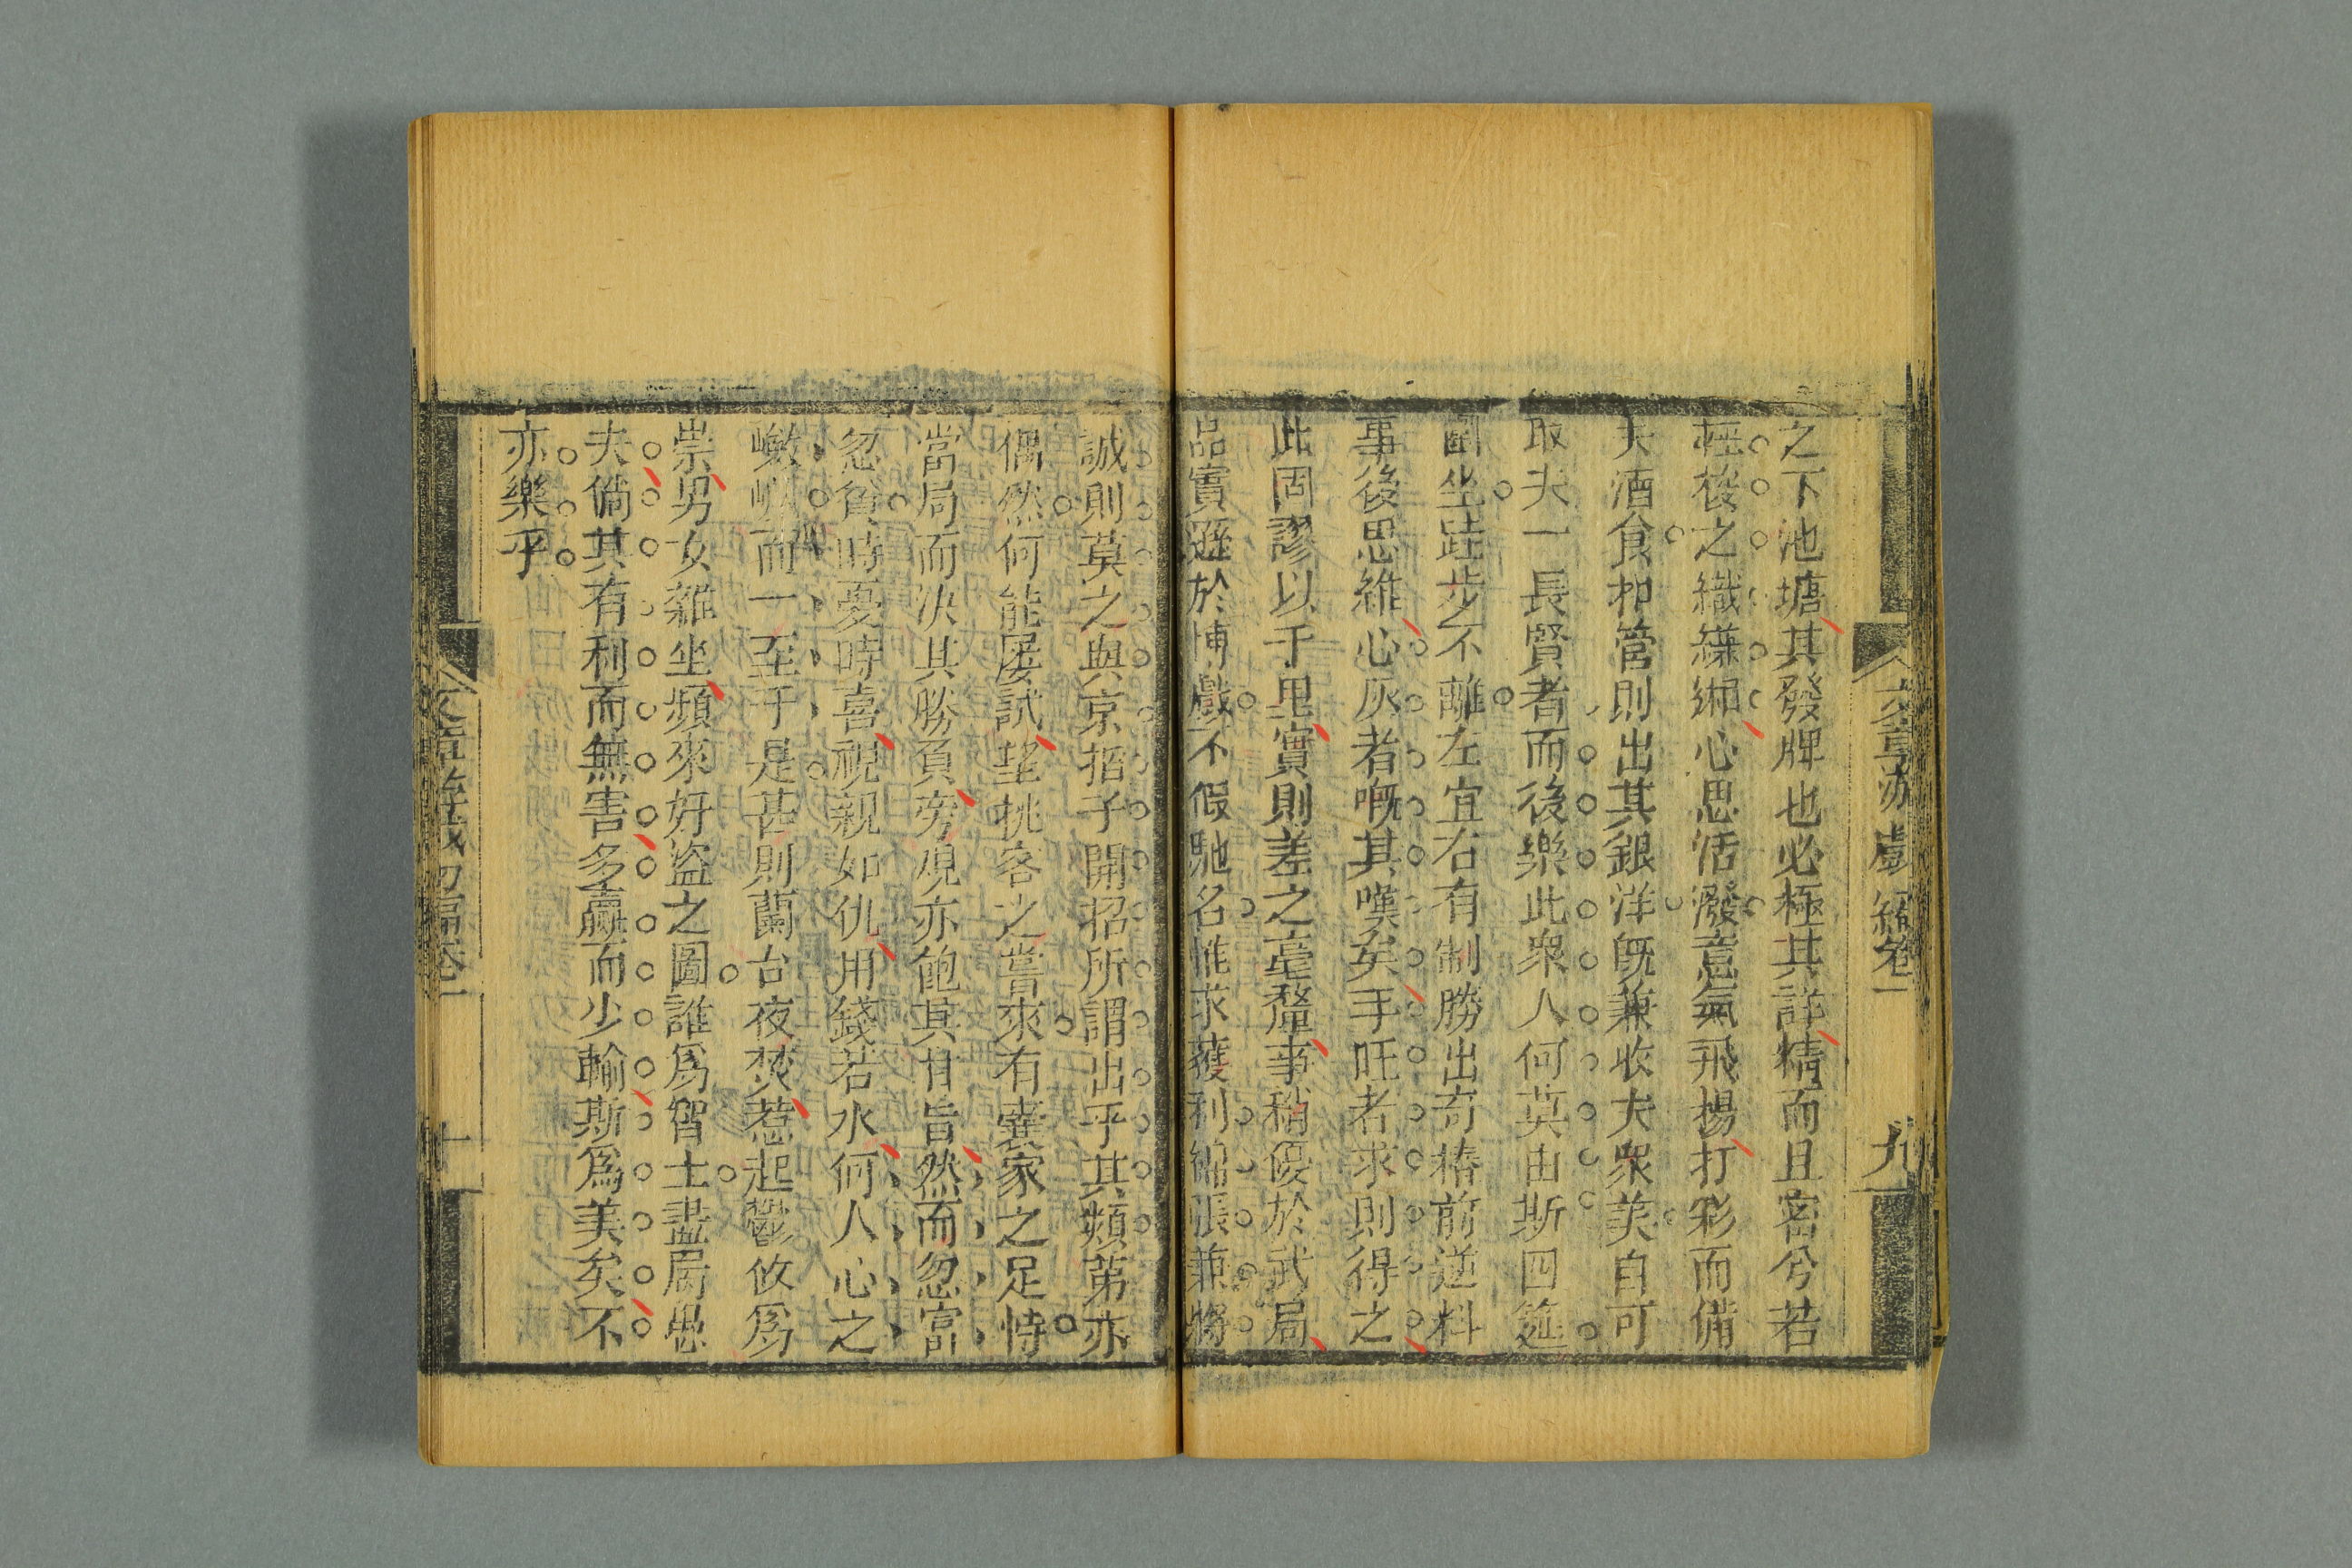 文章游戲 初編卷一 九
之下池塘其發牌也必極其詳精而且密兮若
梭之織縑緗心思活潑意氣飛揚打彩而備
夫酒食扣管則出其銀洋既兼收夫衆美自可
取夫一長賢者而後樂此衆人何莫由斯四筵
圍坐跬步不離左宜右有制勝出奇樁前逆料
事後思維心灰者嘅其嘆矣手旺者求則得之
此固謬以千里實則差之毫釐事稍優於武局
品實遜於博戲不假馳名惟求獲利綿張兼將
誠則莫之與京招子開招所謂出乎其類第亦
偶然何能屢試埜挑客之嘗來有囊家之足恃
當局而決其勝負旁觀亦飽其甘旨然而忽富
忽貧時憂時喜視親如仇用錢若水何人心之
嶔而一至于是甚則蘭台夜焚惹起鬱攸爲
崇男女雜坐頻來好盜之圖誰爲智士盡屬愚
夫倘其有利而無害多贏而少輸斯爲美矣不
亦樂乎
文章游戲 初編卷一 十